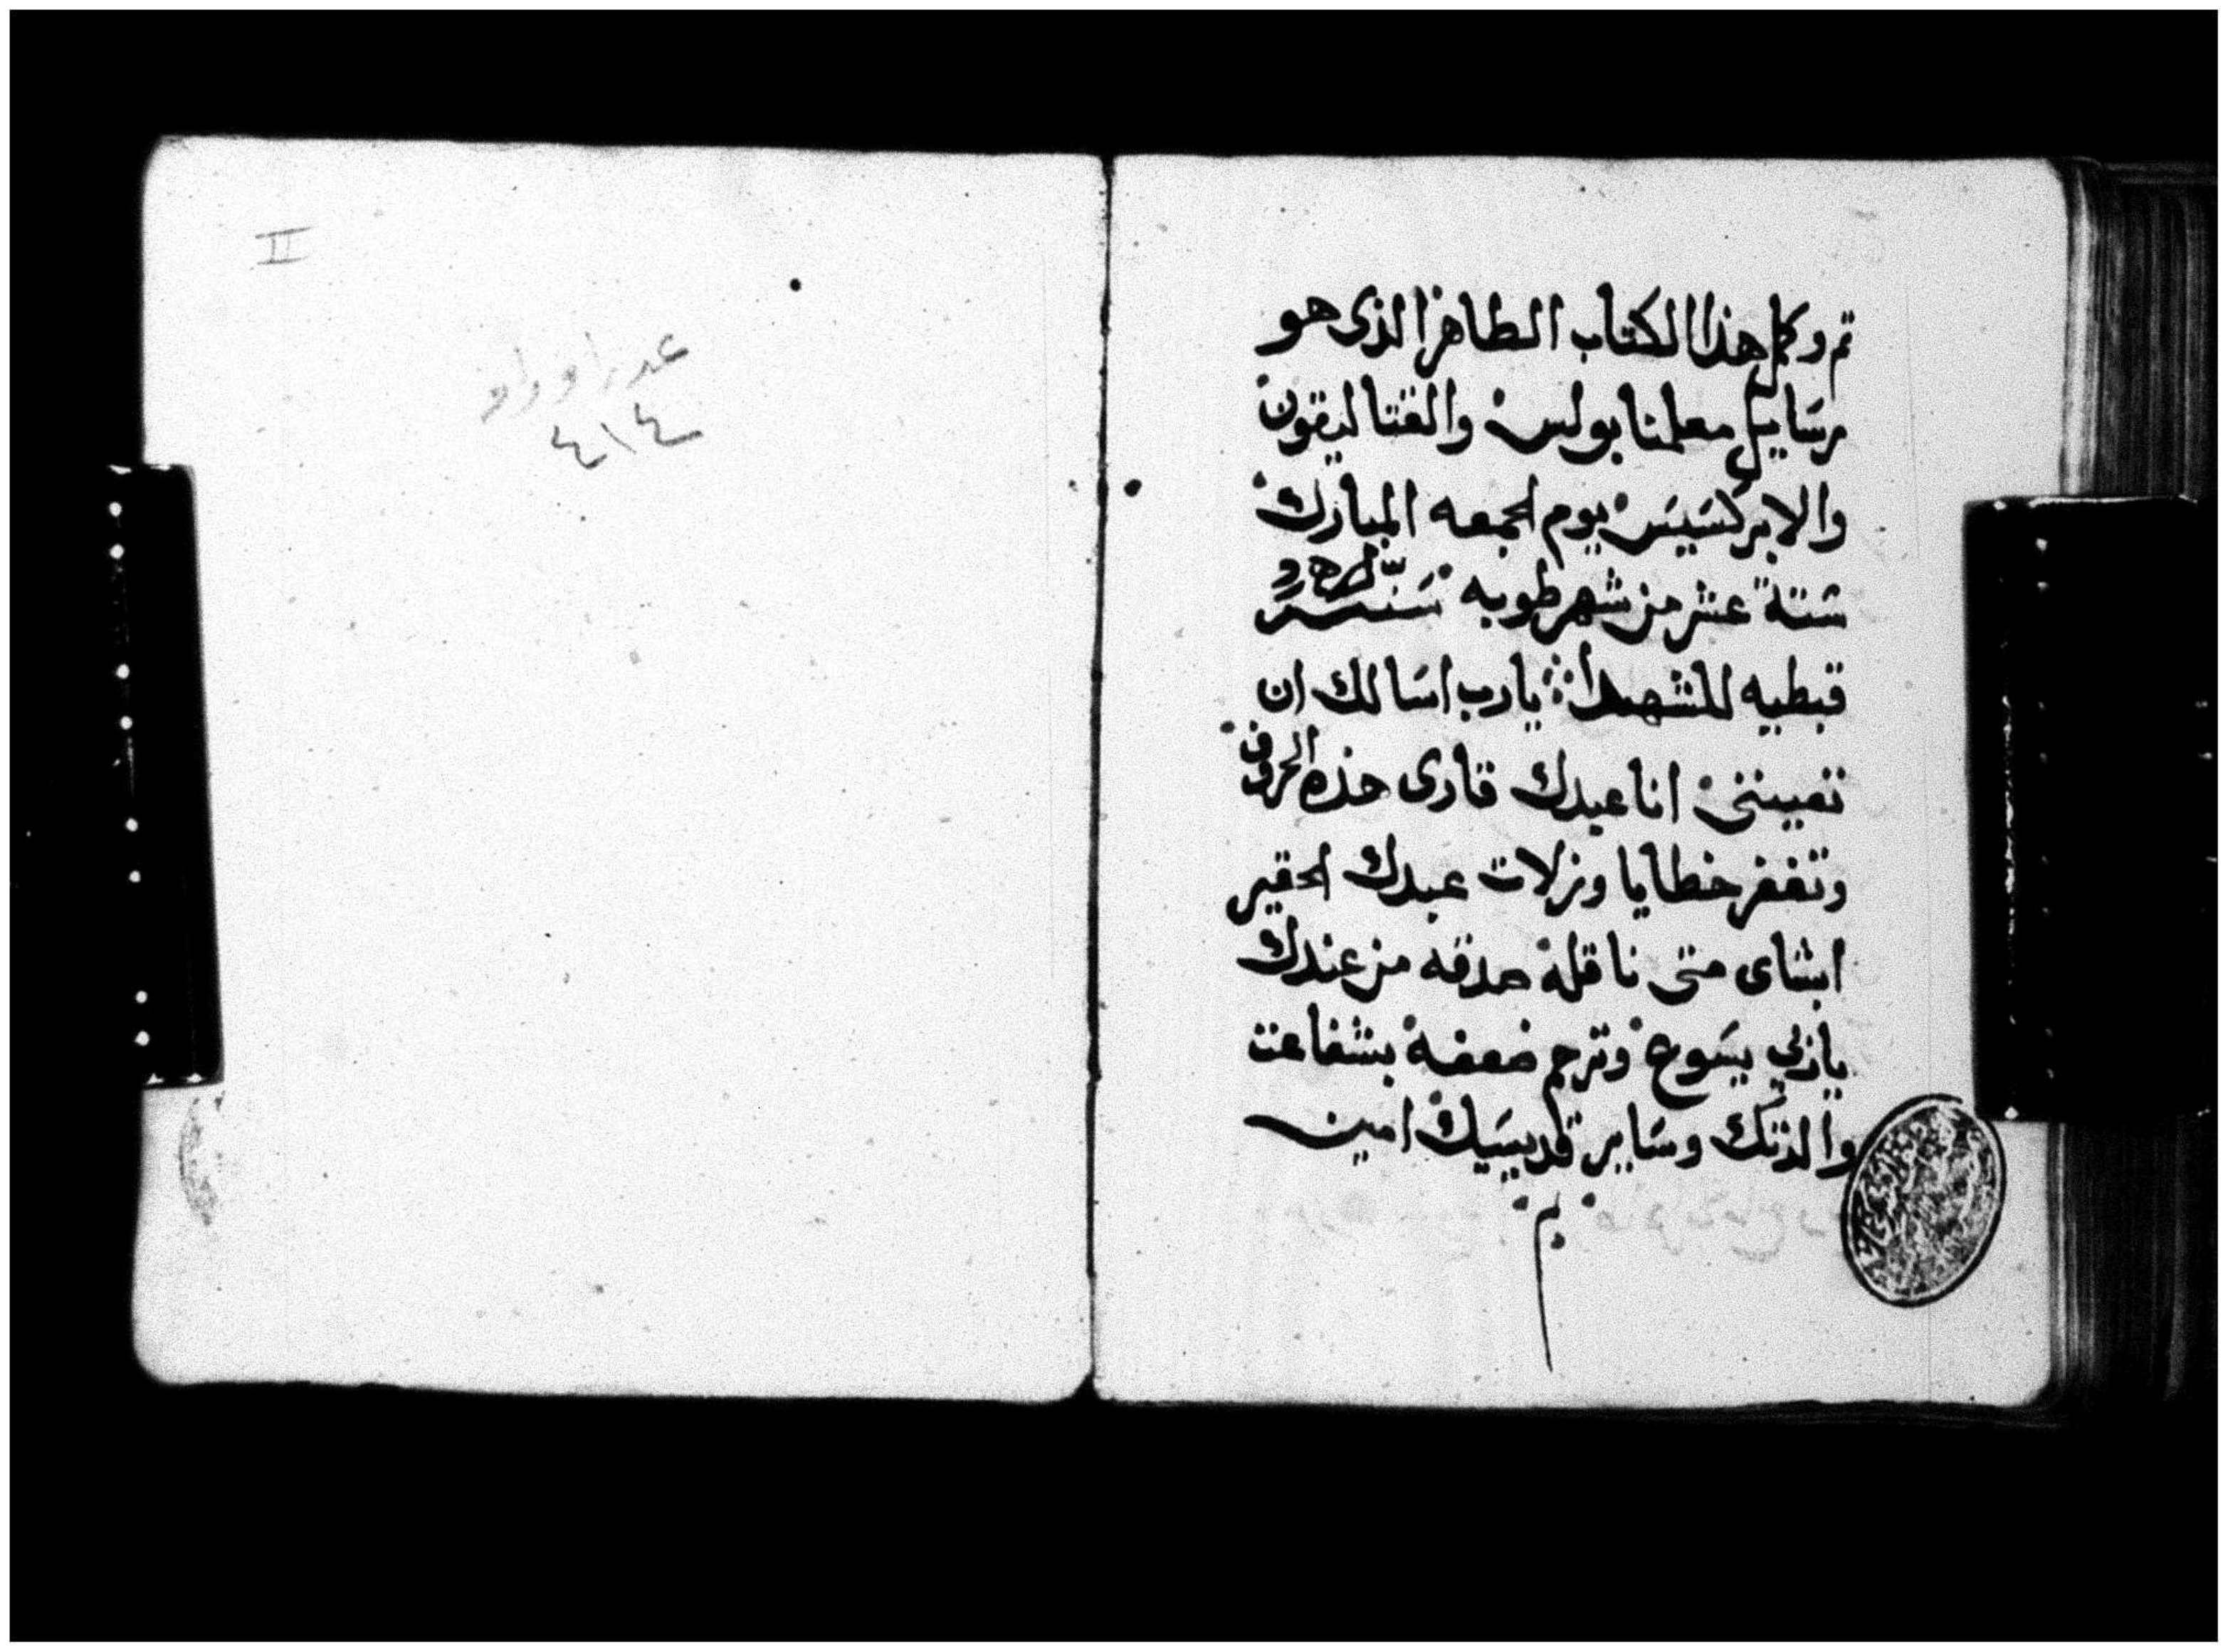 تم وكمل هذا الكتاب الطاهر الذى هو
رسايل معلمنا بولس والقتاليقون
والابركسيس يوم الجمعه المبارك
ستة عشر من شهر طوبه سنة
قبطيه للشهدا يارب اسالك ان
تعيننى انا عبدك قارى هذه الحروف
وتغفر خطايا وزلات عبدك الحقير
ابشاى منى ناقله صدقه من عندك
يا ربي يسوع وترحم ضعفه بشفاعت
والدتك وساير قديسيك امين
II
عدد اوراق
٤١٤